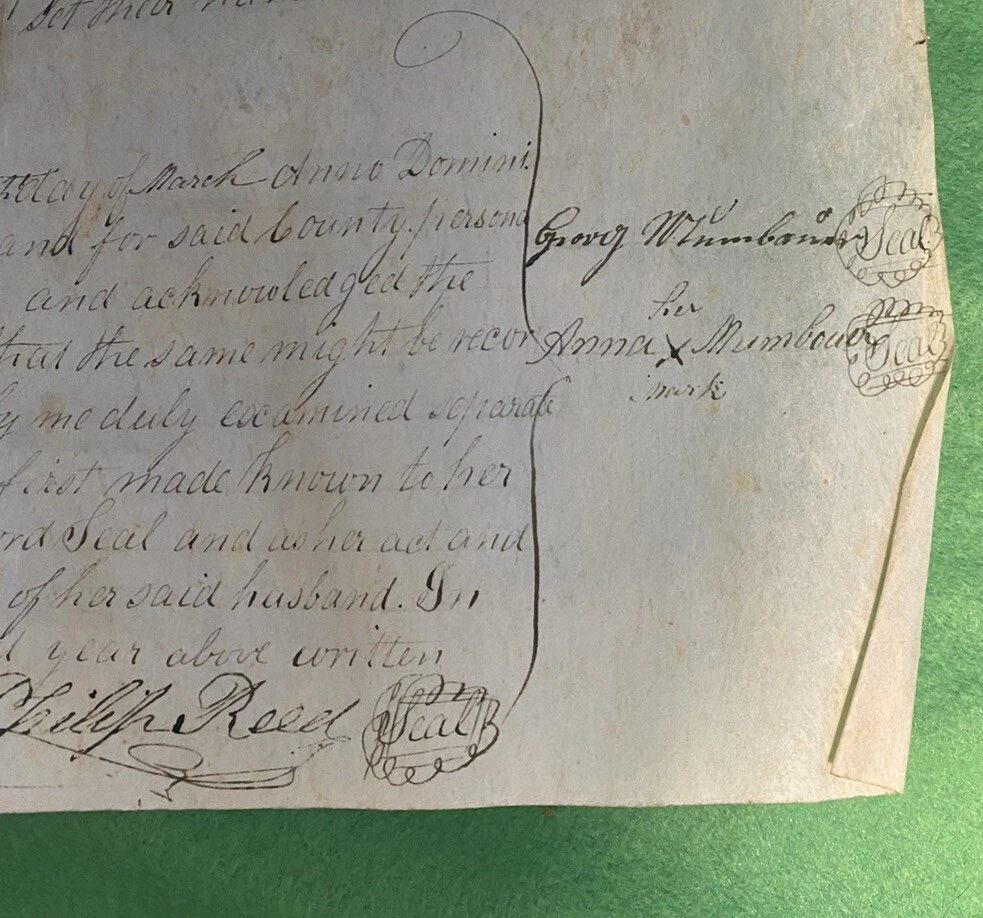 set their
day of March Anno Domini
and for said County persona
and acknowledged the
that the same might be recor
by me duly examined separate
first made known to her
ord Seal and as her act and
of her said husband. In
d year above written
Philip Reed Seal
Georg Mumbauer Seal
her
Anna x Mumbouer Seal
mark